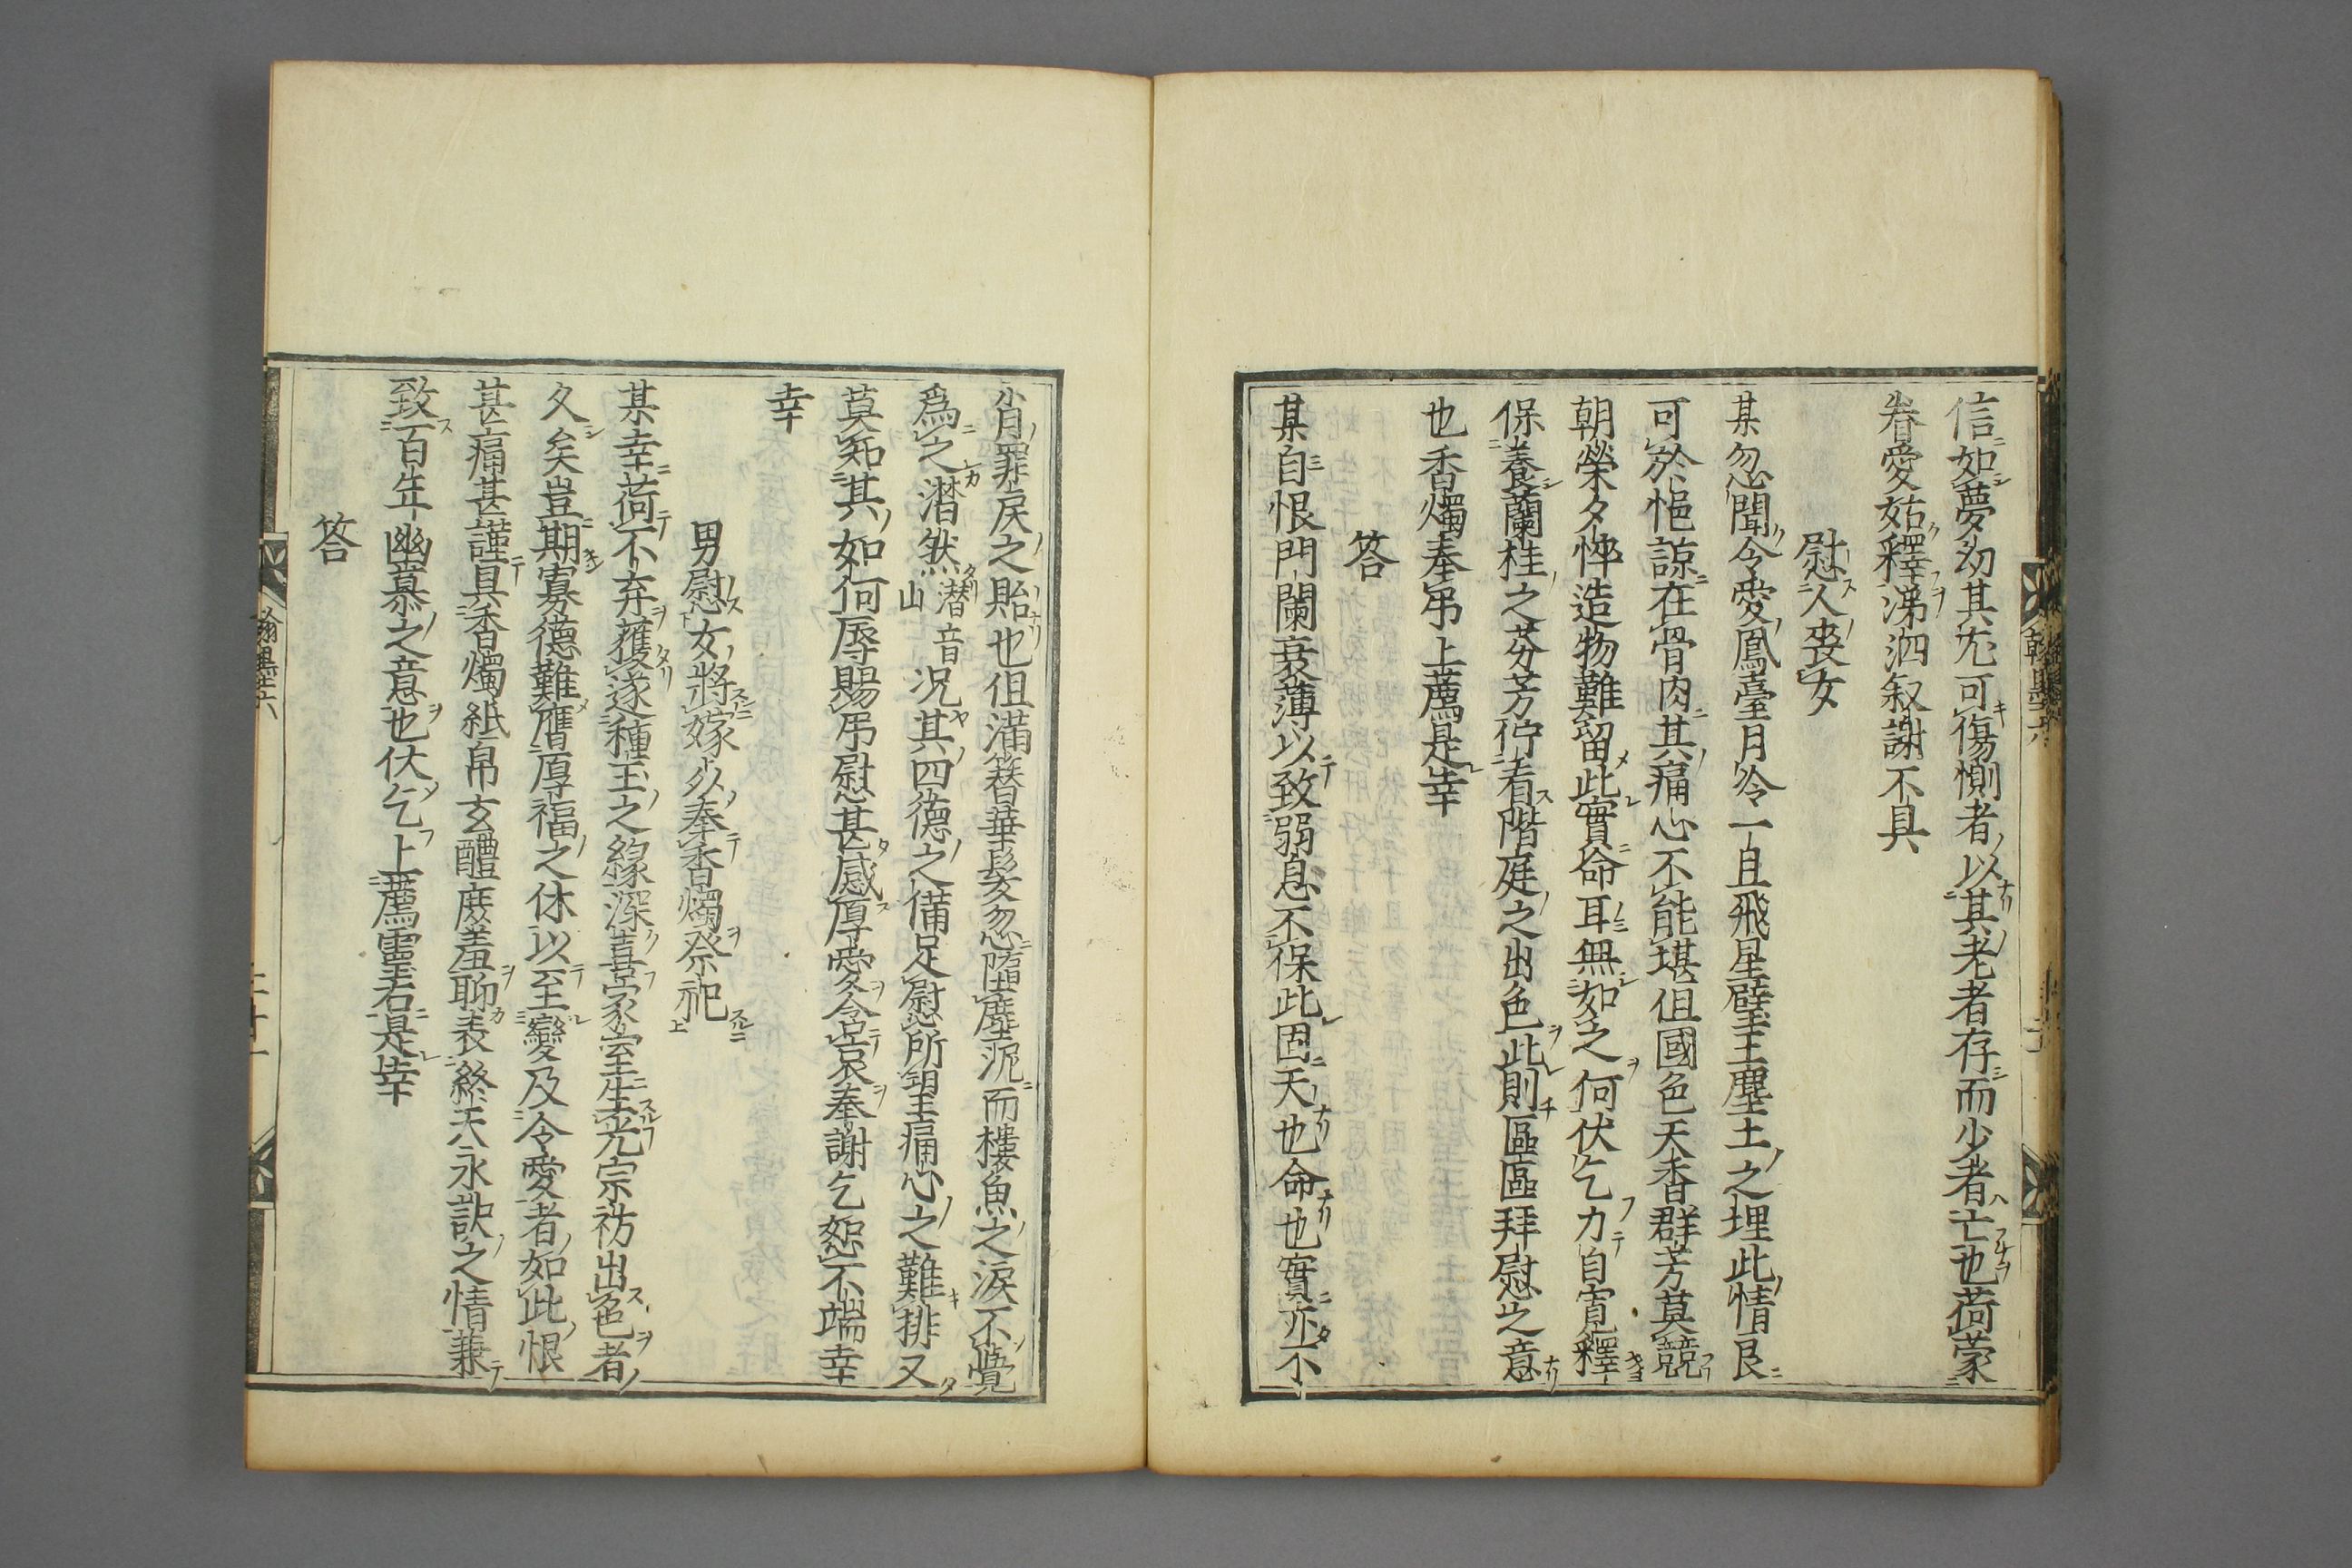 信如夢幻其尤可傷惻者以其老者存而少者亡也荷蒙
眷愛姑釋涕泗叙謝不具
慰人喪女
某忽聞令愛鳳臺月冷一旦飛星璧玉塵土之埋此情良
可於悒諒在骨肉其痛心不能堪但國色天香群芳莫競
朝榮夕悴造物難留此實命耳無如之何伏乞力自寬釋
保養蘭桂之芬芳佇看階庭之出色此則區區拜慰之意
也香燭奉吊上薦是幸
答
某自恨門闌衰薄以致弱息不保此固天也命也實亦不
肖罪戾之貽也但滿簪華髮忽墮塵泥而樓魚之淚不覺
爲之潸然潸音山况其四德之備足慰所望痛心之難排又
莫知其如何辱賜吊慰甚感厚愛含哀奉謝乞恕不端幸
幸
男慰女將嫁必奉香燭祭祀
某幸荷不弃獲遂種玉之緣深喜家室生光宗祊出色者
久矣豈期寡德難膺厚福之休以至變及令愛者如此恨
甚痛甚謹具香燭紙帛玄醴庶羞聊表終天永訣之情兼
致百年幽慕之意也伏乞上薦靈右是幸
答
翰墨卷六